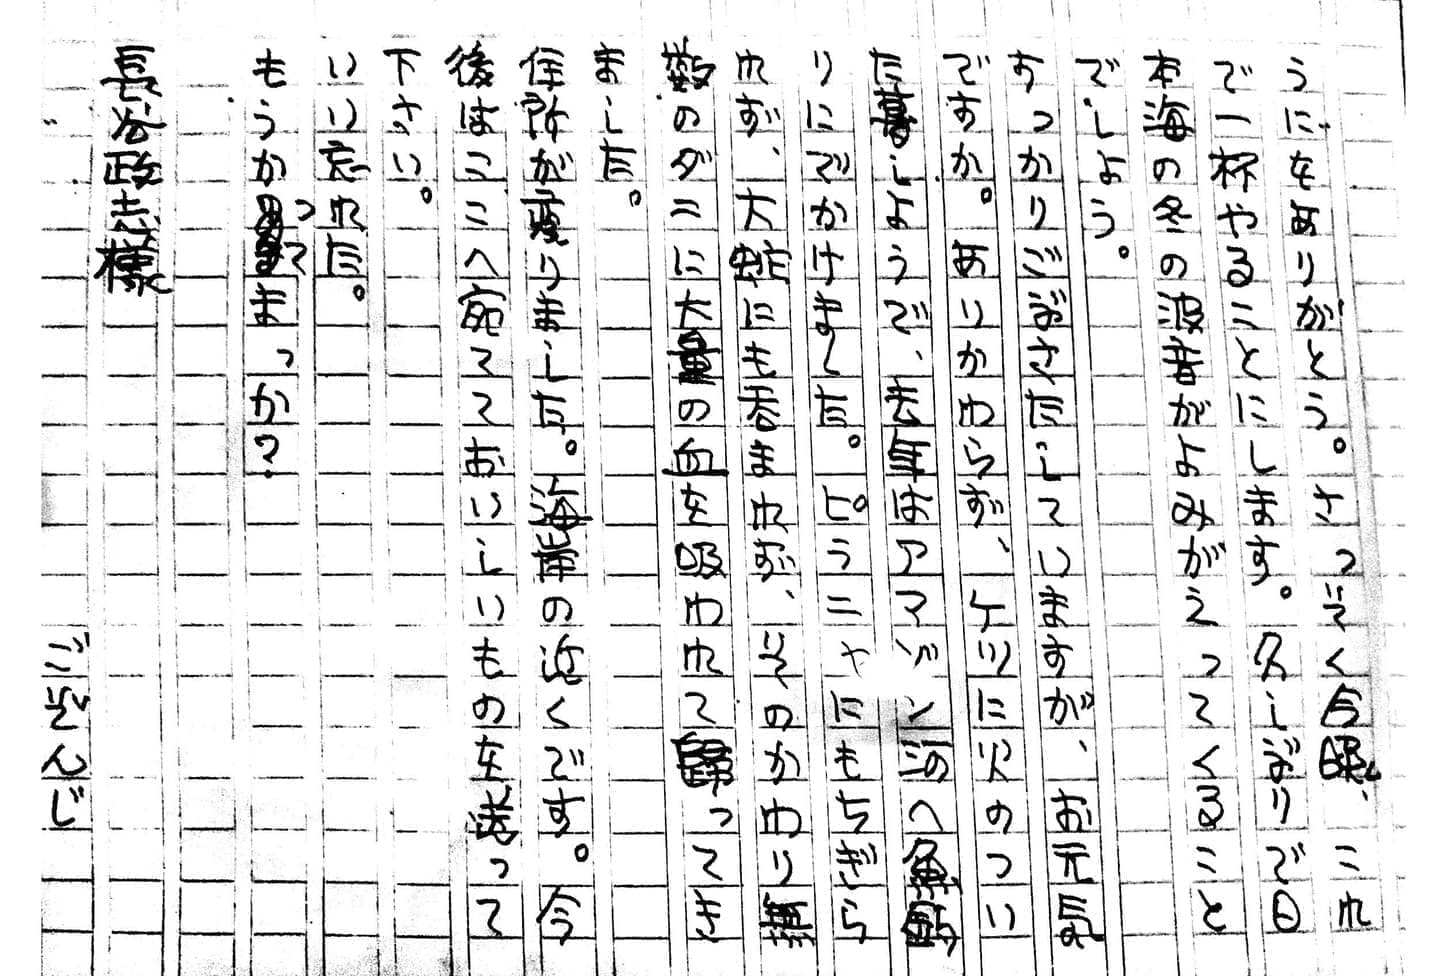 うにをありがとう。さっそく今晩、これ
で一杯やることにします。久しぶりで日
本海の冬の波音がよみがえってくること
でしょう。
すっかりごぶさたしていますが、お元気
ですか。あいかわらず、ケツに火のつい
た暮しようで、去年はアマゾン河へ魚釣
りにでかけました。ピラニヤにもちぎら
れず、大蛇にも呑まれず、そのかわり無
数のダニに大量の血を吸われて帰ってき
ました。
住所が変りました。海岸の近くです。今
後はここへ宛てておいしいものを送って
下さい。
いい忘れた。
もうかってまっか?
長谷政志様
ごぞんじ